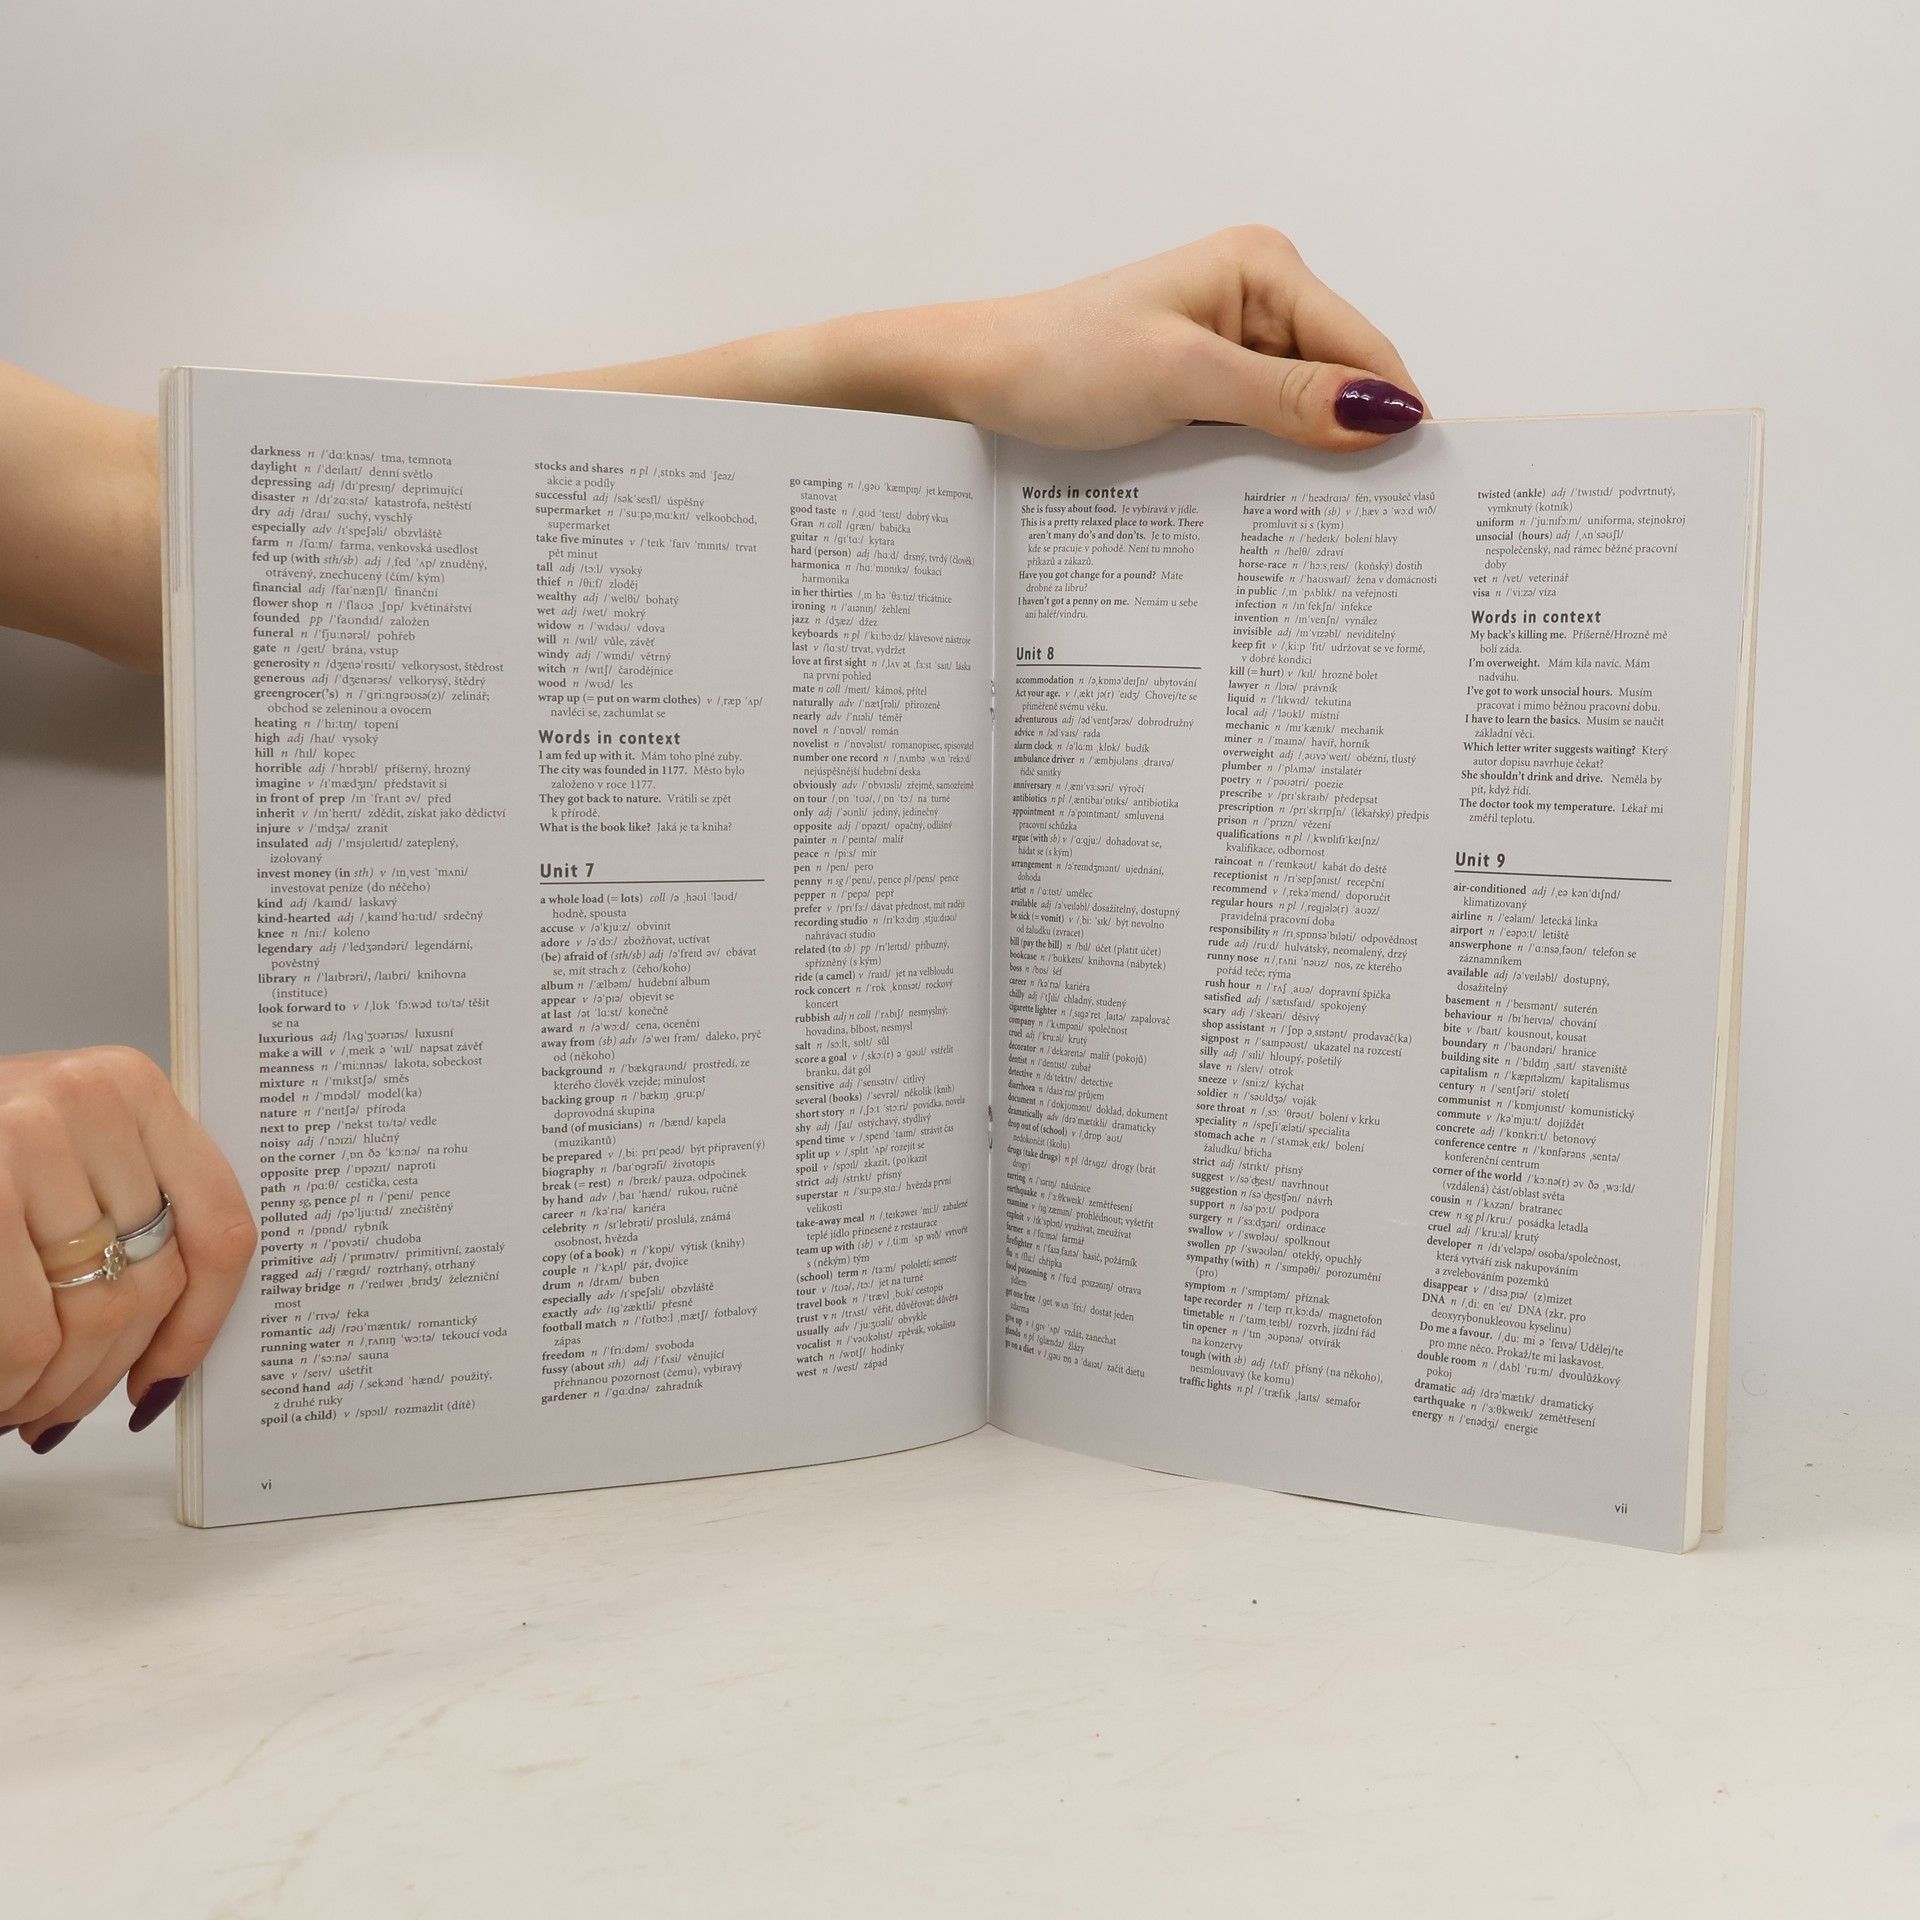 darkness n /ˈdɑːknəs/ tma, temnota
daylight n /ˈdeɪlaɪt/ denní světlo
depressing adj /dɪˈpresɪŋ/ deprimující
disaster n /dɪˈzɑːstə/ katastrofa, neštěstí
dry adj /draɪ/ suchý, vyschlý
especially adv /ɪˈspeʃəli/ obzvláště
farm n /fɑːm/ farma, venkovská usedlost
fed up (with sth/sb) adj /ˌfed ˈʌp/ znuděný,
otrávený, znechucený (čím/ kým)
financial adj /faɪˈnænʃl/ finanční
flower shop n /ˈflaʊə ˌʃɒp/ květinářství
founded pp /ˈfaʊndɪd/ založen
funeral n /ˈfjuːnərəl/ pohřeb
gate n /geɪt/ brána, vstup
generosity n /dʒenəˈrɒsɪti/ velkorysost, štědrost
generous adj /ˈdʒenərəs/ velkorysý, štědrý
greengrocer('s) n /ˈgriːngrəʊsə(z)/ zelinář;
obchod se zeleninou a ovocem
heating n /ˈhiːtɪŋ/ topení
high adj /haɪ/ vysoký
hill n /hɪl/ kopec
horrible adj /ˈhɒrəbl/ příšerný, hrozný
imagine v /ɪˈmædʒɪn/ představit si
in front of prep /ɪn ˈfrʌnt əv/ před
inherit v /ɪnˈherɪt/ zdědit, získat jako dědictví
injure v /ˈɪndʒə/ zranit
insulated adj /ˈɪnsjʊleɪtɪd/ zateplený,
izolovaný
invest money (in sth) v /ɪnˌvest ˈmʌni/
investovat peníze (do něčeho)
kind adj /kaɪnd/ laskavý
kind-hearted adj /ˌkaɪndˈhɑːtɪd/ srdečný
knee n /niː/ koleno
legendary adj /ˈledʒəndəri/ legendární,
pověstný
library n /ˈlaɪbrəri/, /laɪbri/ knihovna
(instituce)
look forward to v /ˌlʊk ˈfɔːwəd tʊ/tə/ těšit
se na
luxurious adj /lʌgˈʒʊərɪəs/ luxusní
make a will v /ˌmeɪk ə ˈwɪl/ napsat závěť
meanness n /ˈmiːnnəs/ lakota, sobeckost
mixture n /ˈmɪkstʃə/ směs
model n /ˈmɒdəl/ model(ka)
nature n /ˈneɪtʃə/ příroda
next to prep /ˈnekst tʊ/tə/ vedle
noisy adj /ˈnɔɪzi/ hlučný
on the corner /ˌɒn ðə ˈkɔːnə/ na rohu
opposite prep /ˈɒpəzɪt/ naproti
path n /pɑːθ/ cestička, cesta
penny sg, pence pl n /ˈpeni/ pence
polluted adj /pəˈljuːtɪd/ znečištěný
pond n /pɒnd/ rybník
poverty n /ˈpɒvəti/ chudoba
primitive adj /ˈprɪmətɪv/ primitivní, zaostalý
ragged adj /ˈrægɪd/ roztrhaný, otrhaný
railway bridge n /ˈreɪlweɪ ˌbrɪdʒ/ železniční
most
river n /ˈrɪvə/ řeka
romantic adj /rəʊˈmæntɪk/ romantický
running water n /ˌrʌnɪŋ ˈwɔːtə/ tekoucí voda
sauna n /ˈsɔːnə/ sauna
save v /seɪv/ ušetřit
second hand adj /ˌsekənd ˈhænd/ použitý,
z druhé ruky
spoil (a child) v /spɔɪl/ rozmazlit (dítě)
vi
stocks and shares n pl /ˌstɒks ənd ˈʃeəz/
akcie a podíly
successful adj /səkˈsesfl/ úspěšný
supermarket n /ˈsuːpəˌmɑːkɪt/ velkoobchod,
supermarket
take five minutes v /ˈteɪk ˈfaɪv ˈmɪnɪts/ trvat
pět minut
tall adj /tɔːl/ vysoký
thief n /θiːf/ zloděj
wealthy adj /ˈwelθi/ bohatý
wet adj /wet/ mokrý
widow n /ˈwɪdəʊ/ vdova
will n /wɪl/ vůle, závěť
windy adj /ˈwɪndi/ větrný
witch n /wɪtʃ/ čarodějnice
wood n /wʊd/ les
wrap up (= put on warm clothes) v /ˌræp ˈʌp/
navléci se, zachumlat se
Words in context
I am fed up with it. Mám toho plné zuby.
The city was founded in 1177. Město bylo
založeno v roce 1177.
They got back to nature. Vrátili se zpět
k přírodě.
What is the book like? Jaká je ta kniha?
Unit 7
a whole load (= lots) coll /ə ˌhəʊl ˈləʊd/
hodně, spousta
accuse v /əˈkjuːz/ obvinit
adore v /əˈdɔː/ zbožňovat, uctívat
(be) afraid of (sth/sb) adj /əˈfreɪd əv/ obávat
se, mít strach z (čeho/koho)
album n /ˈælbəm/ hudební album
appear v /əˈpɪə/ objevit se
at last /ət ˈlɑːst/ konečně
award n /əˈwɔːd/ cena, ocenění
away from (sb) adv /əˈweɪ frəm/ daleko, pryč
od (někoho)
background n /ˈbækgraʊnd/ prostředí, ze
kterého člověk vzejde; minulost
backing group n /ˈbækɪŋ ˌgruːp/
doprovodná skupina
band (of musicians) n /bænd/ kapela
(muzikantů)
be prepared v /ˌbiː prɪˈpeəd/ být připraven(ý)
biography n /baɪˈɒgrəfi/ životopis
break (= rest) n /breɪk/ pauza, odpočinek
by hand adv /ˌbaɪ ˈhænd/ rukou, ručně
career n /kəˈrɪə/ kariéra
celebrity n /sɪˈlebrəti/ proslulá, známá
osobnost, hvězda
copy (of a book) n /ˈkɒpi/ výtisk (knihy)
couple n /ˈkʌpl/ pár, dvojice
drum n /drʌm/ buben
especially adv /ɪˈspeʃəli/ obzvláště
exactly adv /ɪgˈzæktli/ přesně
football match n /ˈfʊtbɔːl ˌmætʃ/ fotbalový
zápas
freedom n /ˈfriːdəm/ svoboda
fussy (about sth) adj /ˈfʌsi/ věnující
přehnanou pozornost (čemu), vybíravý
gardener n /ˈgɑːdnə/ zahradník
go camping n /ˌgəʊ ˈkæmpɪŋ/ jet kempovat,
stanovat
good taste n /ˌgʊd ˈteɪst/ dobrý vkus
Gran n coll /græn/ babička
guitar n /gɪˈtɑː/ kytara
hard (person) adj /hɑːd/ drsný, tvrdý (člověk)
harmonica n /hɑːˈmɒnɪkə/ foukací
harmonika
in her thirties /ˌɪn hə ˈθɜːtiz/ třicátnice
ironing n /ˈaɪənɪŋ/ žehlení
jazz n /dʒæz/ džez
keyboards n pl /ˈkiːbɔːdz/ klávesové nástroje
last v /lɑːst/ trvat, vydržet
love at first sight n /ˌlʌv ət ˌfɜːst ˈsaɪt/ láska
na první pohled
mate n coll /meɪt/ kámoš, přítel
naturally adv /ˈnætʃrəli/ přirozeně
nearly adv /ˈnɪəli/ téměř
novel n /ˈnɒvəl/ román
novelist n /ˈnɒvəlɪst/ romanopisec, spisovatel
number one record n /ˌnʌmbə ˌwʌn ˈrekɔːd/
nejúspěšnější hudební deska
obviously adv /ˈɒbvɪəsli/ zřejmě, samozřejmě
on tour /ˌɒn ˈtʊə/, /ˌɒn ˈtɔː/ na turné
only adj /ˈəʊnli/ jediný, jedinečný
opposite adj /ˈɒpəzɪt/ opačný, odlišný
painter n /ˈpeɪntə/ malíř
peace n /piːs/ mír
pen n /pen/ pero
penny n sg /ˈpeni/, pence pl /pens/ pence
pepper n /ˈpepə/ pepř
prefer v /prɪˈfɜː/ dávat přednost, mít raději
recording studio n /rɪˈkɔːdɪŋ ˌstjuːdiəʊ/
nahrávací studio
related (to sb) pp /rɪˈleɪtɪd/ příbuzný,
spřízněný (s kým)
ride (a camel) v /raɪd/ jet na velbloudu
rock concert n /ˈrɒk ˌkɒnsət/ rockový
koncert
rubbish adj n coll /ˈrʌbɪʃ/ nesmyslný;
hovadina, blbost, nesmysl
salt n /sɔːlt, sɒlt/ sůl
score a goal v /ˌskɔː(r) ə ˈgəʊl/ vstřelit
branku, dát gól
sensitive adj /ˈsensətɪv/ citlivý
several (books) /ˈsevrəl/ několik (knih)
short story n /ˌʃɔːt ˈstɔːri/ povídka, novela
shy adj /ʃaɪ/ ostýchavý, stydlivý
spend time v /ˌspend ˈtaɪm/ strávit čas
split up v /ˌsplɪt ˈʌp/ rozejít se
spoil v /spɔɪl/ zkazit, (po)kazit
strict adj /strɪkt/ přísný
superstar n /ˈsuːpəˌstɑː/ hvězda první
velikosti
take-away meal n /ˌteɪkəweɪ ˈmiːl/ zabalené
teplé jídlo přinesené z restaurace
team up with (sb) v /ˌtiːm ˈʌp wɪð/ vytvořit
s (někým) tým
(school) term n /tɜːm/ pololetí; semestr
tour v /tʊə/, /tɔː/ jet na turné
travel book n /ˈtrævl ˌbʊk/ cestopis
trust v n /trʌst/ věřit, důvěřovat; důvěra
usually adv /ˈjuːʒʊəli/ obvykle
vocalist n /ˈvəʊkəlɪst/ zpěvák, vokalista
watch n /wɒtʃ/ hodinky
west n /west/ západ
Words in context
She is fussy about food. Je vybíravá v jídle.
This is a pretty relaxed place to work. There
aren't many do's and don'ts. Je to místo,
kde se pracuje v pohodě. Není tu mnoho
příkazů a zákazů.
Have you got change for a pound? Máte
drobné za libru?
I haven't got a penny on me. Nemám u sebe
ani haléř/vindru.
Unit 8
accommodation n /əˌkɒməˈdeɪʃn/ ubytování
Act your age. v /ˌækt jə(r) ˈeɪdʒ/ Chovej/te se
přiměřeně svému věku.
adventurous adj /ədˈventʃərəs/ dobrodružný
advice n /ədˈvaɪs/ rada
alarm clock n /əˈlɑːm ˌklɒk/ budík
ambulance driver n /ˈæmbjʊləns ˌdraɪvə/
řidič sanitky
anniversary n /ˌænɪˈvɜːsəri/ výročí
antibiotics n pl /ˌæntibaɪˈɒtɪks/ antibiotika
appointment n /əˈpɔɪntmənt/ smluvená
pracovní schůzka
argue (with sb) v /ˈɑːgjuː/ dohadovat se,
hádat se (s kým)
arrangement n /əˈreɪndʒmənt/ ujednání,
dohoda
artist n /ˈɑːtɪst/ umělec
available adj /əˈveɪləbl/ dosažitelný, dostupný
be sick (= vomit) v /ˌbiː ˈsɪk/ být nevolno
od žaludku (zvracet)
bill (pay the bill) n /bɪl/ účet (platit účet)
bookcase n /ˈbʊkkeɪs/ knihovna (nábytek)
boss n /bɒs/ šéf
career n /kəˈrɪə/ kariéra
chilly adj /ˈtʃɪli/ chladný, studený
cigarette lighter n /ˌsɪgəˈret ˌlaɪtə/ zapalovač
company n /ˈkʌmpəni/ společnost
cruel adj /ˈkruːəl/ krutý
decorator n /ˈdekəreɪtə/ malíř (pokojů)
dentist n /ˈdentɪst/ zubař
detective n /dɪˈtektɪv/ detective
diarrhoea n /daɪəˈrɪə/ průjem
document n /ˈdɒkjʊmənt/ doklad, dokument
dramatically adv /drəˈmætɪkli/ dramaticky
drop out of (school) v /ˌdrɒp ˈaʊt/
nedokončit (školu)
drugs (take drugs) n pl /drʌgz/ drogy (brát
drogy)
earring n /ˈɪərɪŋ/ náušnice
earthquake n /ˈɜːθkweɪk/ zemětřesení
examine v /ɪgˈzæmɪn/ prohlédnout; vyšetřit
exploit v /ɪkˈsplɔɪt/ využívat, zneužívat
farmer n /ˈfɑːmə/ farmář
firefighter n /ˈfaɪəˌfaɪtə/ hasič, požárník
flu n /fluː/ chřipka
food poisoning n /ˈfuːd ˌpɔɪzənɪŋ/ otrava
jídlem
get one free /ˌget wʌn ˈfriː/ dostat jeden
zdarma
give up v /ˌgɪv ˈʌp/ vzdát, zanechat
glands n pl /glændz/ žlázy
go on a diet v /ˌgəʊ ɒn ə ˈdaɪət/ začít dietu
hairdrier n /ˈheədraɪə/ fén, vysoušeč vlasů
have a word with (sb) v /ˌhæv ə ˈwɜːd wɪð/
promluvit si s (kým)
headache n /ˈhedeɪk/ bolení hlavy
health n /helθ/ zdraví
horse-race n /ˈhɔːsˌreɪs/ (koňský) dostih
housewife n /ˈhaʊswaɪf/ žena v domácnosti
in public /ˌɪn ˈpʌblɪk/ na veřejnosti
infection n /ɪnˈfekʃn/ infekce
invention n /ɪnˈvenʃn/ vynález
invisible adj /ɪnˈvɪzəbl/ neviditelný
keep fit v /ˌkiːp ˈfɪt/ udržovat se ve formě,
v dobré kondici
kill (= hurt) v /kɪl/ hrozně bolet
lawyer n /lɔɪə/ právník
liquid n /ˈlɪkwɪd/ tekutina
local adj /ˈləʊkl/ místní
mechanic n /mɪˈkænɪk/ mechanik
miner n /ˈmaɪnə/ havíř, horník
overweight adj /ˌəʊvəˈweɪt/ obézní, tlustý
plumber n /ˈplʌmə/ instalatér
poetry n /ˈpəʊətri/ poezie
prescribe v /prɪˈskraɪb/ předepsat
prescription n /prɪˈskrɪpʃn/ (lékařský) předpis
prison n /ˈprɪzn/ vězení
qualifications n pl /ˌkwɒlɪfɪˈkeɪʃnz/
kvalifikace, odbornost
raincoat n /ˈreɪnkəʊt/ kabát do deště
receptionist n /rɪˈsepʃənɪst/ recepční
recommend v /ˌrekəˈmend/ doporučit
regular hours n pl /ˌregjələ(r) ˈaʊəz/
pravidelná pracovní doba
responsibility n /rɪˌspɒnsəˈbɪləti/ odpovědnost
rude adj /ruːd/ hulvátský, neomalený, drzý
runny nose n /ˌrʌni ˈnəʊz/ nos, ze kterého
pořád teče; rýma
rush hour n /ˈrʌʃ ˌaʊə/ dopravní špička
satisfied adj /ˈsætɪsfaɪd/ spokojený
scary adj /ˈskeəri/ děsivý
shop assistant n /ˈʃɒp əˌsɪstənt/ prodavač(ka)
signpost n /ˈsaɪnpəʊst/ ukazatel na rozcestí
silly adj /ˈsɪli/ hloupý, pošetilý
slave n /sleɪv/ otrok
sneeze v /sniːz/ kýchat
soldier n /ˈsəʊldʒə/ voják
sore throat n /ˌsɔː ˈθrəʊt/ bolení v krku
speciality n /speʃiˈæləti/ specialita
stomach ache n /ˈstʌmək ˌeɪk/ bolení
žaludku/ břicha
strict adj /strɪkt/ přísný
suggest v /səˈdʒest/ navrhnout
suggestion n /səˈdʒestʃən/ návrh
support n /səˈpɔːt/ podpora
surgery n /ˈsɜːdʒəri/ ordinace
swallow v /ˈswɒləʊ/ spolknout
swollen pp /ˈswəʊlən/ oteklý, opuchlý
sympathy (with) n /ˈsɪmpəθi/ porozumění
(pro)
symptom n /ˈsɪmptəm/ příznak
tape recorder n /ˈteɪp rɪˌkɔːdə/ magnetofon
timetable n /ˈtaɪmˌteɪbl/ rozvrh, jízdní řád
tin opener n /ˈtɪn ˌəʊpənə/ otvírák
na konzervy
tough (with sb) adj /tʌf/ přísný (na někoho),
nesmlouvavý (ke komu)
traffic lights n pl /ˈtræfɪk ˌlaɪts/ semafor
twisted (ankle) adj /ˈtwɪstɪd/ podvrtnutý,
vymknutý (kotník)
uniform n /ˈjuːnɪfɔːm/ uniforma, stejnokroj
unsocial (hours) adj /ˌʌnˈsəʊʃl/
nespolečenský, nad rámec běžné pracovní
doby
vet n /vet/ veterinář
visa n /ˈviːzə/ víza
Words in context
My back's killing me. Příšerně/Hrozně mě
bolí záda.
I'm overweight. Mám kila navíc. Mám
nadváhu.
I've got to work unsocial hours. Musím
pracovat i mimo běžnou pracovní dobu.
I have to learn the basics. Musím se naučit
základní věci.
Which letter writer suggests waiting? Který
autor dopisu navrhuje čekat?
She shouldn't drink and drive. Neměla by
pít, když řídí.
The doctor took my temperature. Lékař mi
změřil teplotu.
Unit 9
air-conditioned adj /ˌeə kənˈdɪʃnd/
klimatizovaný
airline n /ˈeəlaɪn/ letecká linka
airport n /ˈeəpɔːt/ letiště
answerphone n /ˈɑːnsəˌfəʊn/ telefon se
záznamníkem
available adj /əˈveɪləbl/ dostupný,
dosažitelný
basement n /ˈbeɪsmənt/ suterén
behaviour n /bɪˈheɪvɪə/ chování
bite v /baɪt/ kousnout, kousat
boundary n /ˈbaʊndəri/ hranice
building site n /ˈbɪldɪŋ ˌsaɪt/ staveniště
capitalism n /ˈkæpɪtəlɪzm/ kapitalismus
century n /ˈsentʃəri/ století
communist n /ˈkɒmjʊnɪst/ komunistický
commute v /kəˈmjuːt/ dojíždět
concrete adj /ˈkɒnkriːt/ betonový
conference centre n /ˈkɒnfərəns ˌsentə/
konferenční centrum
corner of the world /ˈkɔːnə(r) əv ðə ˌwɜːld/
(vzdálená) část/oblast světa
cousin n /ˈkʌzən/ bratranec
crew n sg pl /kruː/ posádka letadla
cruel adj /ˈkruːəl/ krutý
developer n /dɪˈveləpə/ osoba/společnost,
která vytváří zisk nakupováním
a zvelebováním pozemků
disappear v /ˈdɪsəˌpɪə/ (z)mizet
DNA n /ˌdiː en ˈeɪ/ DNA (zkr. pro
deoxyribonukleovou kyselinu)
Do me a favour. /ˌduː mi ə ˈfeɪvə/ Udělej/te
pro mne něco. Prokaž/te mi laskavost.
double room n /ˌdʌbl ˈruːm/ dvoulůžkový
pokoj
dramatic adj /drəˈmætɪk/ dramatický
earthquake n /ˈɜːθkweɪk/ zemětřesení
energy n /ˈenədʒi/ energie
vii